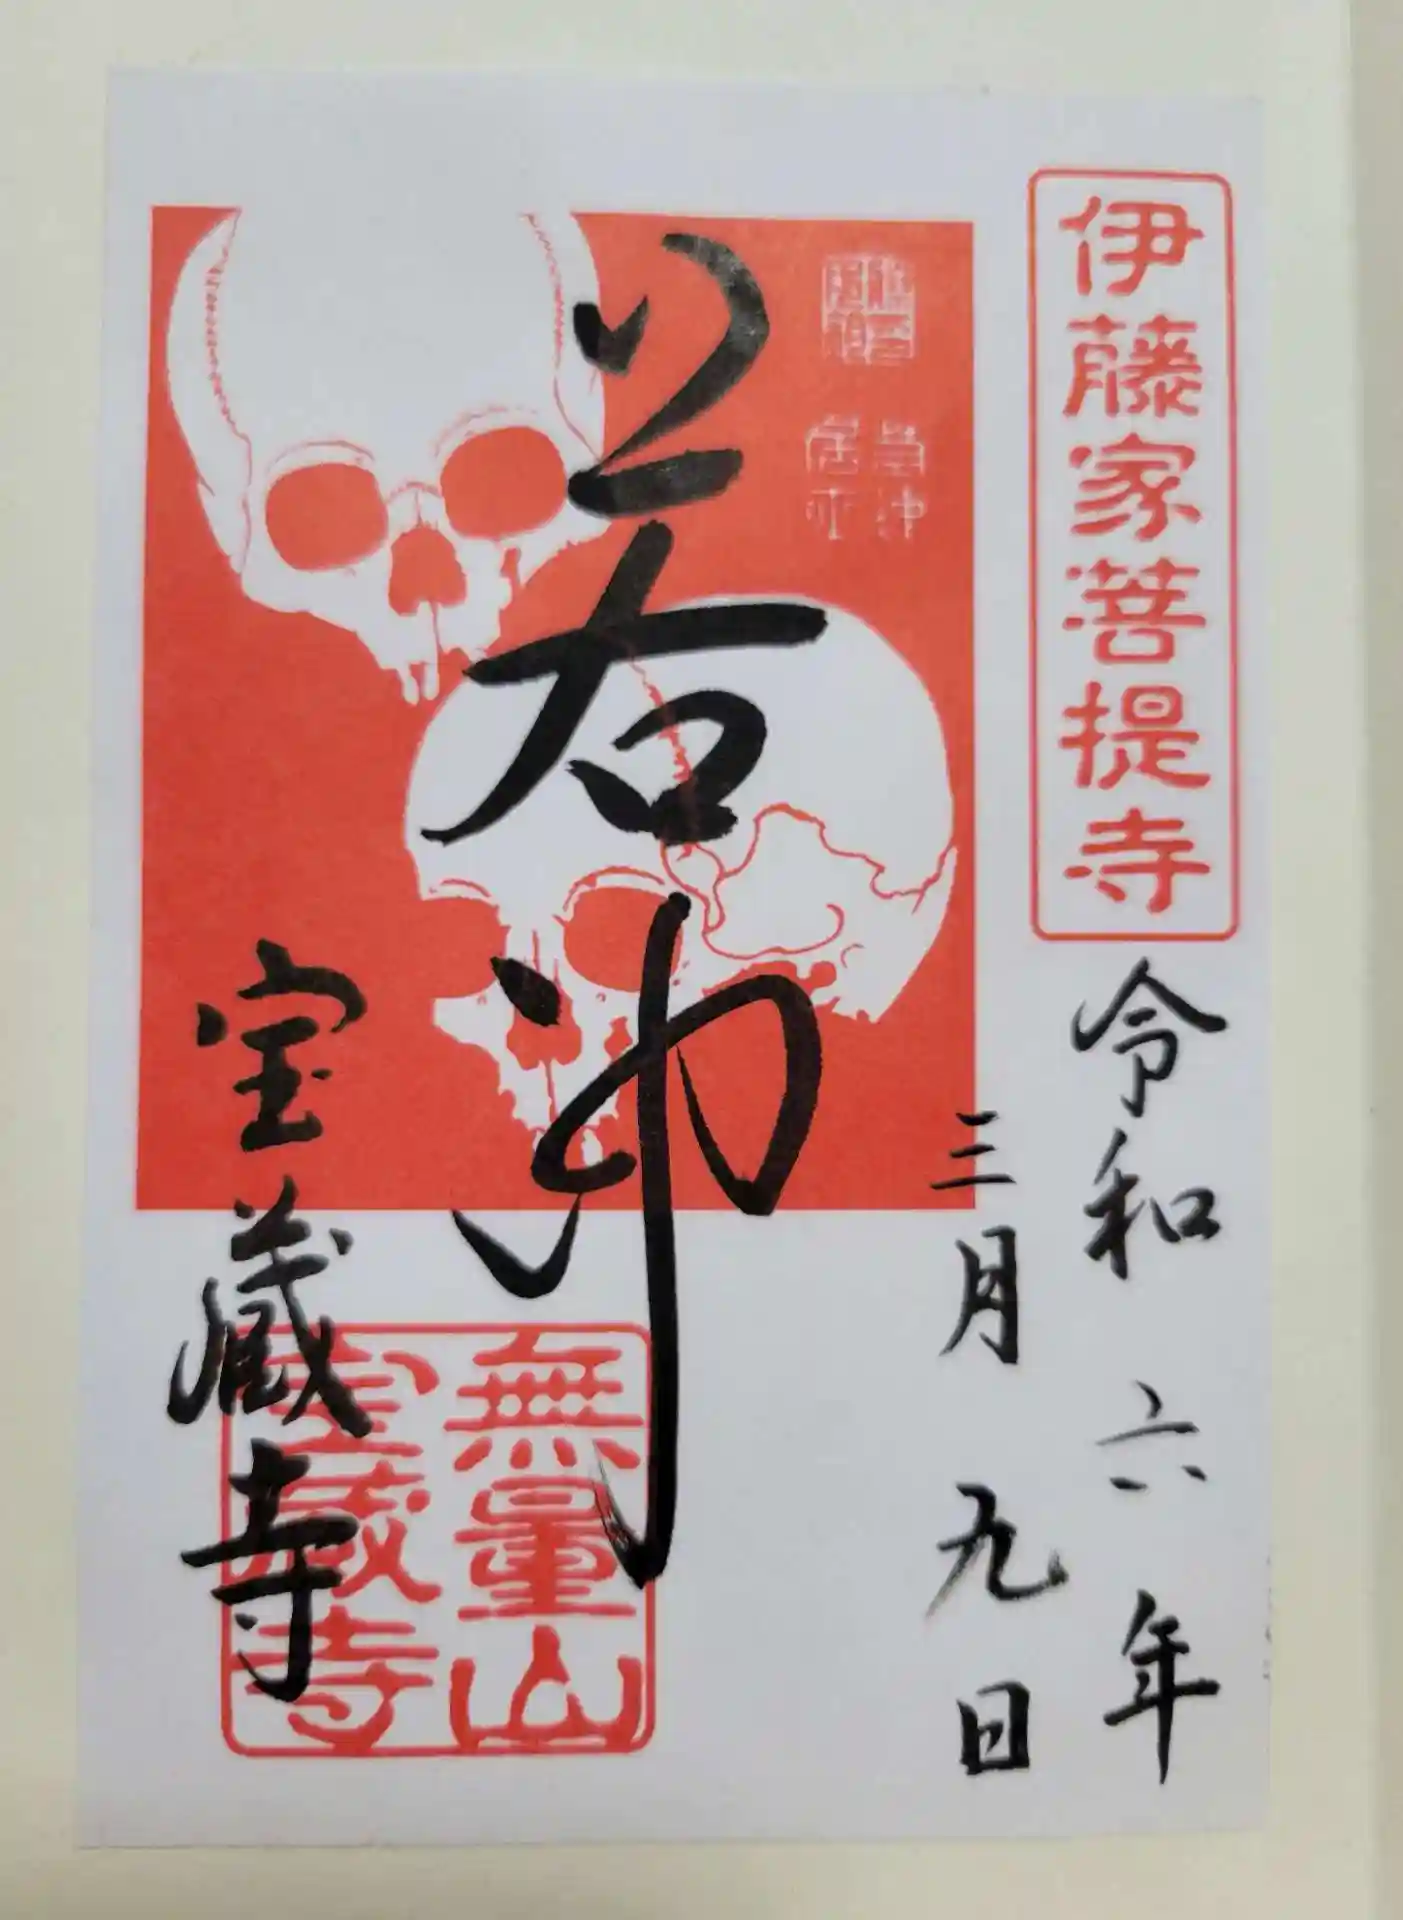 伊藤家菩提寺
令和六年
三月九日
若冲
若冲
居士
宝蔵寺
無量山
宝蔵寺